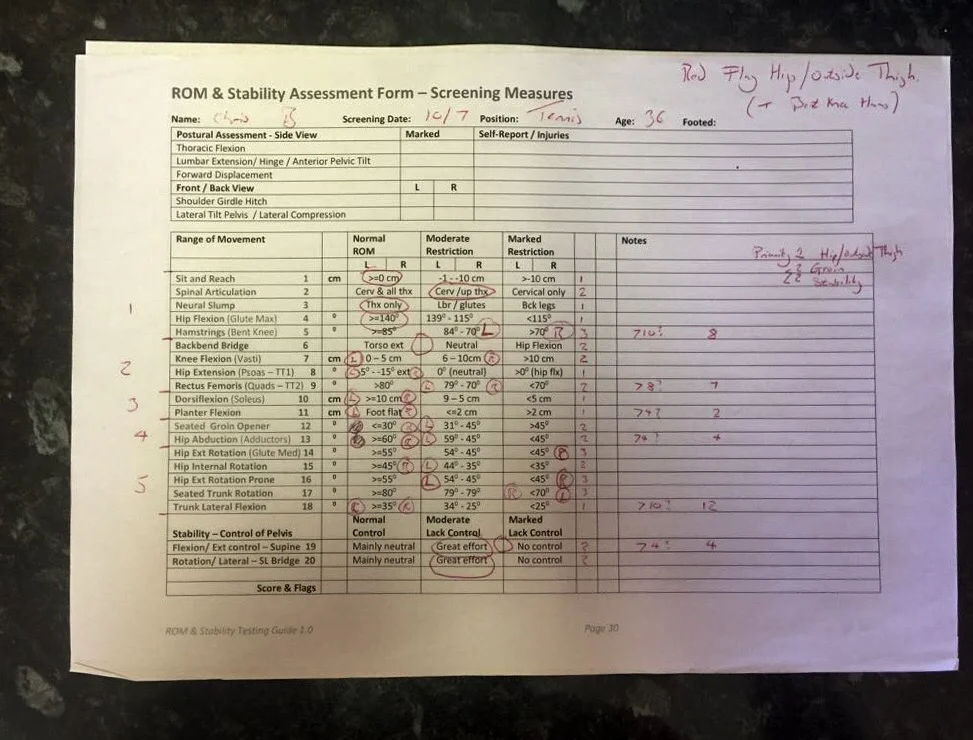 Red Flag Hip/Outside Thigh.
(+ Bent Knee Hams)
ROM & Stability Assessment Form – Screening Measures
Name: Chris B Screening Date: 10/7 Position: Tennis Age: 36 Footed:
Postural Assessment - Side View Marked Self-Report / Injuries
Thoracic Flexion
Lumbar Extension/ Hinge / Anterior Pelvic Tilt
Forward Displacement
Front / Back View L R
Shoulder Girdle Hitch
Lateral Tilt Pelvis / Lateral Compression
Range of Movement Normal ROM Moderate Restriction Marked Restriction Notes
L R L R L R Priority 1 Hip/Outside Thigh
Groin
Stability
Sit and Reach 1 cm >=0 cm -1 - -10 cm >-10 cm 1
Spinal Articulation 2 Cerv & all thx Cerv /up thx Cervical only 2
Neural Slump 3 Thx only Lbr / glutes Bck legs 1
1
Hip Flexion (Glute Max) 4 ° >=140° 139° - 115° <115° 1
Hamstrings (Bent Knee) 5 ° >=85° 84° - 70° L >70° R 3 >10? 8
Backbend Bridge 6 Torso ext Neutral Hip Flexion 2
Knee Flexion (Vasti) 7 cm L 0 – 5 cm 6 – 10cm R >10 cm 2
2
Hip Extension (Psoas – TT1) 8 ° L 5° - -15° ext R 0° (neutral) >0° (hip flx) 1
Rectus Femoris (Quads – TT2) 9 ° >80° L 79° - 70° R <70° 2 >8? 7
Dorsiflexion (Soleus) 10 cm L >=10 cm R 9 – 5 cm <5 cm 1
3
Planter Flexion 11 cm L Foot flat R <=2 cm >2 cm 1 >4? 2
Seated Groin Opener 12 ° <=30° R L 31° - 45° >45° 2
4
Hip Abduction (Adductors) 13 ° >=60° R L 59° - 45° <45° 2 >4? 4
Hip Ext Rotation (Glute Med) 14 >=55° 54° - 45° <45° R 3
Hip Internal Rotation 15 ° >=45° R L 44° - 35° <35° 2
5
Hip Ext Rotation Prone 16 ° >=55° L 54° - 45° <45° R 3
Seated Trunk Rotation 17 ° >=80° 79° - 79° R <70° L 3
Trunk Lateral Flexion 18 ° L >=35° R 34° - 25° <25° 1 >10? 12
Stability – Control of Pelvis Normal Control Moderate Lack Control Marked Lack Control
Flexion/ Ext control – Supine 19 Mainly neutral Great effort No control 2 >4? 4
Rotation/ Lateral – SL Bridge 20 Mainly neutral Great effort No control 2
Score & Flags
ROM & Stability Testing Guide 1.0 Page 30